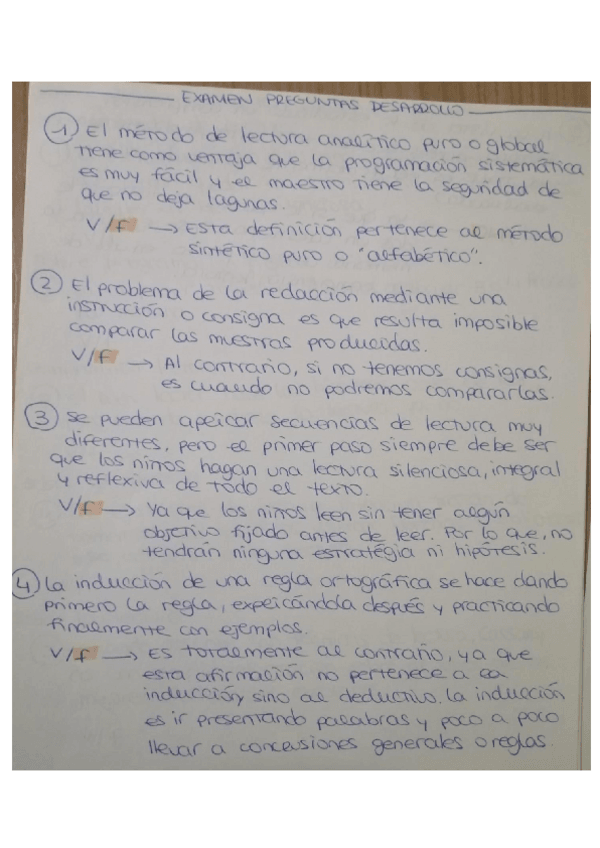 EXAMEN PREGUNTAS DESARROLLO
① El método de lectura analítico puro o global
tiene como ventaja que la programación sistemática
es muy fácil y el maestro tiene la seguridad de
que no deja lagunas.
V/f → Esta definición pertenece al método
sintético puro o "alfabético".
② El problema de la redacción mediante una
instrucción o consigna es que resulta imposible
comparar las muestras producidas.
V/f → Al contraño, si no tenemos consignas,
es cuando no podremos compararlas.
③ Se pueden aplicar secuencias de lectura muy
diferentes, pero el primer paso siempre debe ser
que los niños hagan una lectura silenciosa, integral
y reflexiva de todo el texto.
V/f → Ya que los niños leen sin tener algún
objetivo fijado antes de leer. Por lo que, no
tendrán ninguna estratégia ni hipótesis.
④ La inducción de una regla ortográfica se hace dando
primero la regla, explicándola después y practicando
finalmente con ejemplos.
V/f → Es totalmente al contraño, ya que
esta afirmación no pertenece a la
inducción, sino al deductivo. La inducción
es ir presentando palabras y poco a poco
llevar a conclusiones generales o reglas.